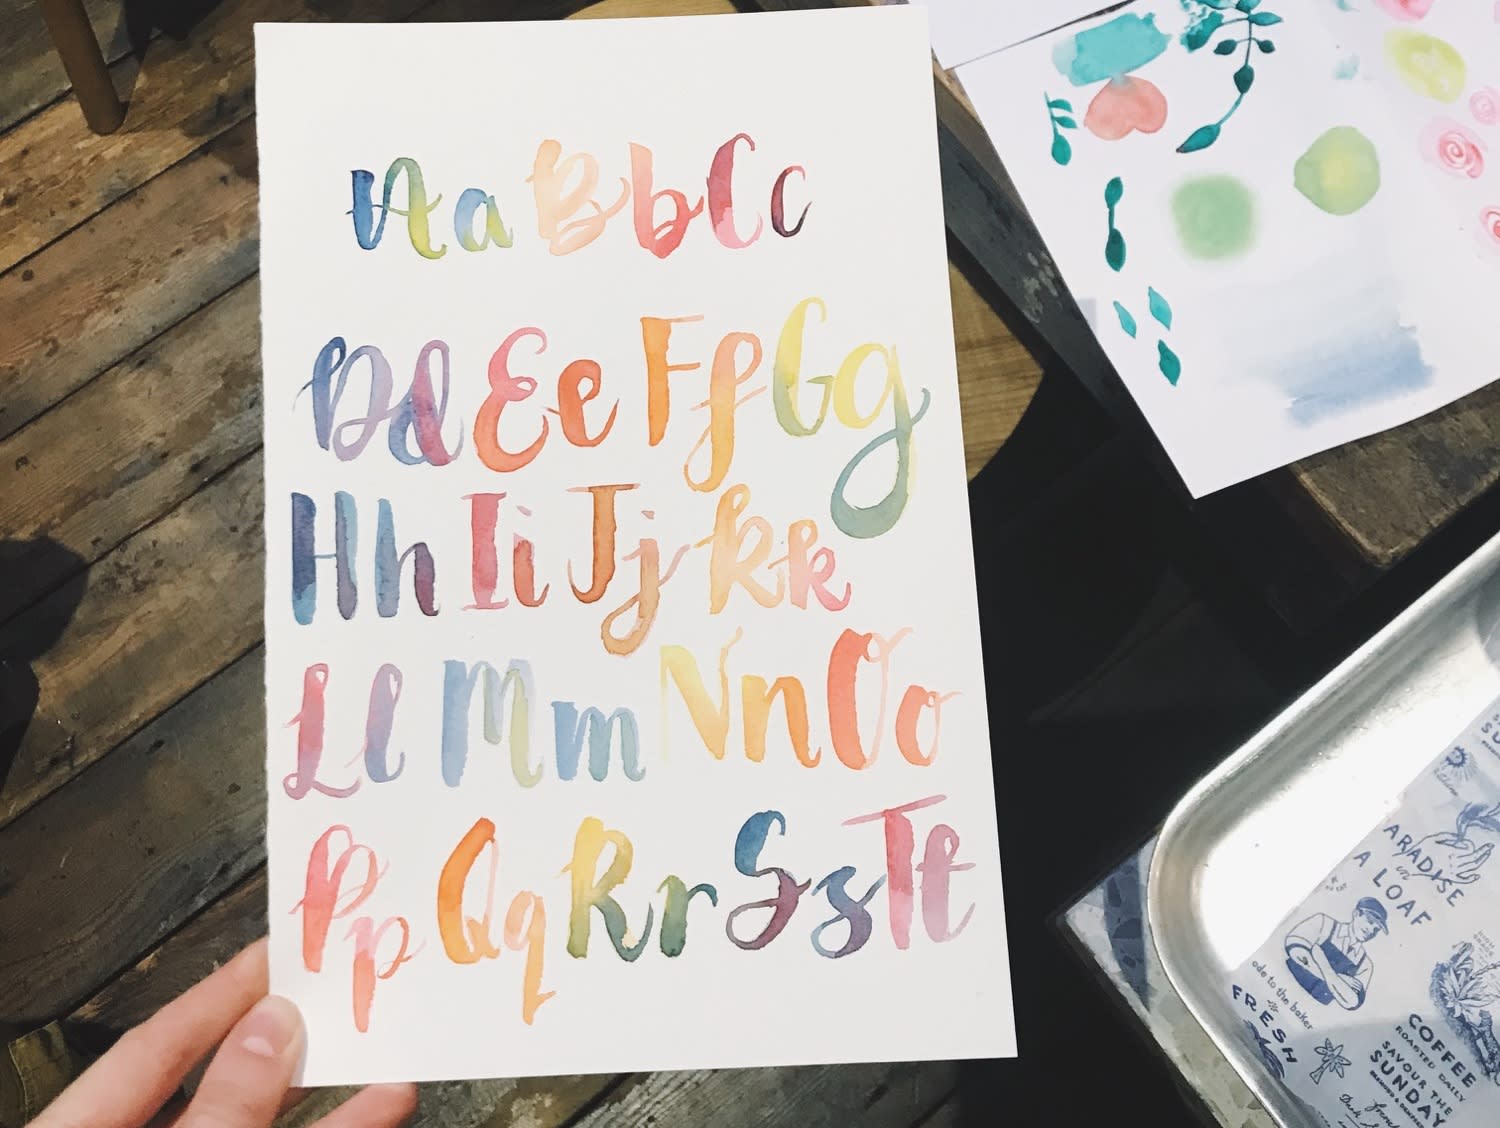 Aa Bb Cc
Dd Ee Ff Gg
Hh Ii Jj Kk
Ll Mm Nn Oo
Pp Qq Rr Ss Tt
ARADISE
in
A LOAF
ode to the baker
FRESH
COFFEE
ROASTED DAILY
SAVOUR THE
SUNDAY